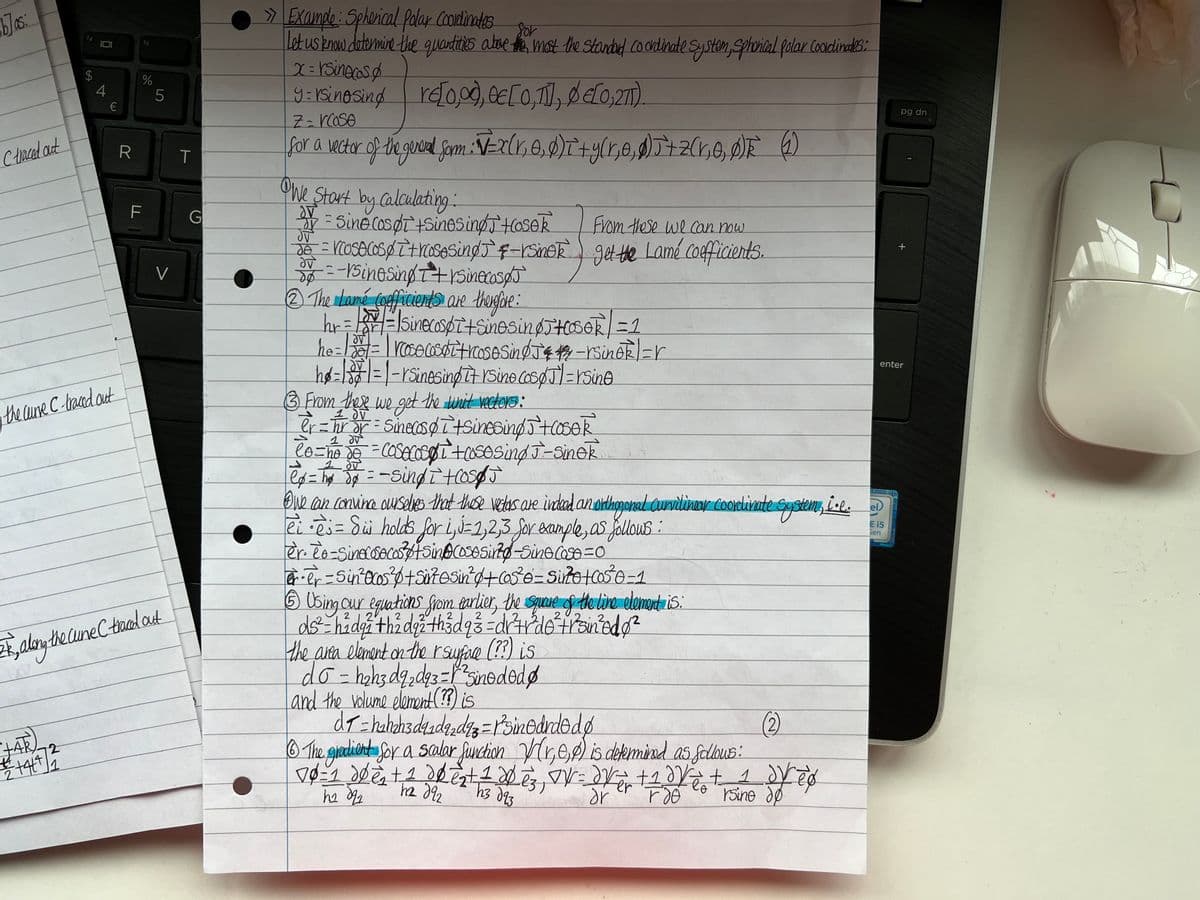 b] as:
C traced out
the curve C traced out
k, along the curve C traced out
$
4
€
%
5
R
T
F
G
V
>> Example: Spherical Polar Coordinates
Let us know determine the quantities above for most the standard coordinate system, spherical polar coordinates:
x = rsinθcosφ
y = rsinθsinφ
z = rcosθ
r∈[0,∞), θ∈[0,π], φ∈[0,2π).
for a vector of the general form: V⃗=x(r,θ,φ)i⃗+y(r,θ,φ)j⃗+z(r,θ,φ)k⃗ (1)
① We start by calculating:
∂V⃗/∂r = sinθcosφi⃗+sinθsinφj⃗+cosθk⃗
∂V⃗/∂θ = rcosθcosφi⃗+rcosθsinφj⃗-rsinθk⃗
∂V⃗/∂φ = -rsinθsinφi⃗+rsinθcosφj⃗
From these we can now
get the Lamé coefficients.
② The Lamé coefficients are therefore:
hr=|∂V⃗/∂r|=|sinθcosφi⃗+sinθsinφj⃗+cosθk⃗|=1
hθ=|∂V⃗/∂θ|=|rcosθcosφi⃗+rcosθsinφj⃗-rsinθk⃗|=r
hφ=|∂V⃗/∂φ|=|-rsinθsinφi⃗+rsinθcosφj⃗|=rsinθ
③ From these we get the unit vectors:
e⃗r=1/hr ∂V⃗/∂r=sinθcosφi⃗+sinθsinφj⃗+cosθk⃗
e⃗θ=1/hθ ∂V⃗/∂θ=cosθcosφi⃗+cosθsinφj⃗-sinθk⃗
e⃗φ=1/hφ ∂V⃗/∂φ=-sinφi⃗+cosφj⃗
④ We can convince ourselves that these vectors are indeed an orthogonal curvilinear coordinate system, i.e.
e⃗i·e⃗j=δij holds for i,j=1,2,3, for example, as follows:
e⃗r·e⃗θ=sinθcosθcos²φ+sinθcosθsin²φ-sinθcosθ=0
e⃗r·e⃗r=sin²θcos²φ+sin²θsin²φ+cos²θ=sin²θ+cos²θ=1
⑤ Using our equations from earlier, the square of the line element is:
ds²=h₁²dq₁²+h₂²dq₂²+h₃²dq₃²=dr²+r²dθ²+r²sin²θdφ²
the area element on the r surface (??) is
dσ=h₂h₃dq₂dq₃=r²sinθdθdφ
and the volume element (??) is
dτ=h₁h₂h₃dq₁dq₂dq₃=r²sinθdrdθdφ (2)
⑥ The gradient for a scalar function V(r,θ,φ) is determined as follows:
∇φ=1/h₁ ∂φ/∂q₁ e⃗₁+1/h₂ ∂φ/∂q₂ e⃗₂+1/h₃ ∂φ/∂q₃ e⃗₃, ∇V=∂V/∂r e⃗r+1/r ∂V/∂θ e⃗θ+1/rsinθ ∂V/∂φ e⃗φ
pg dn
-
+
enter